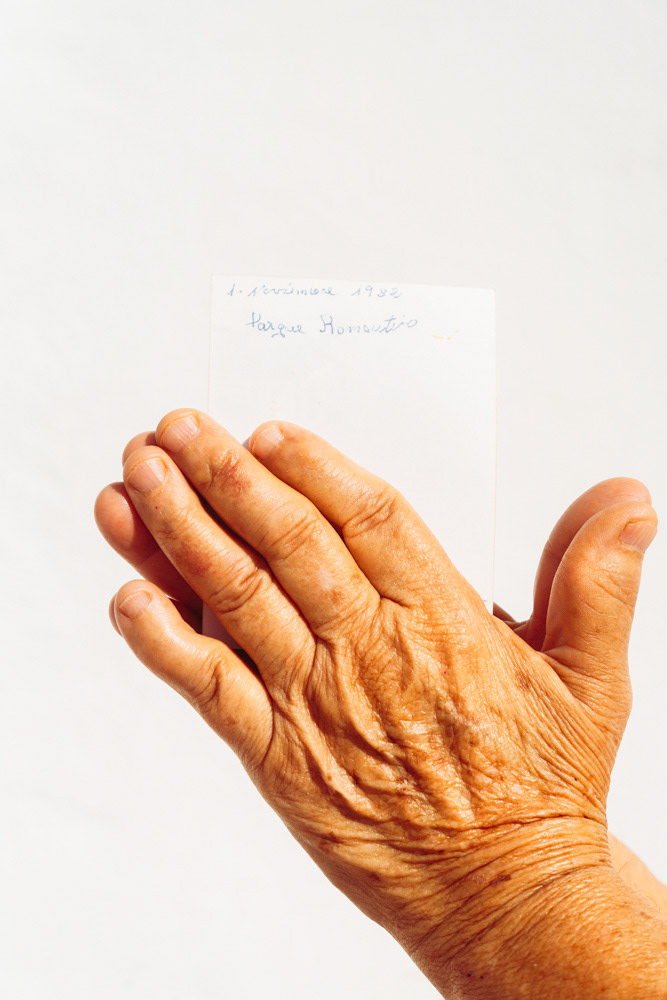 1. Novembre 1982
Parque Romantico